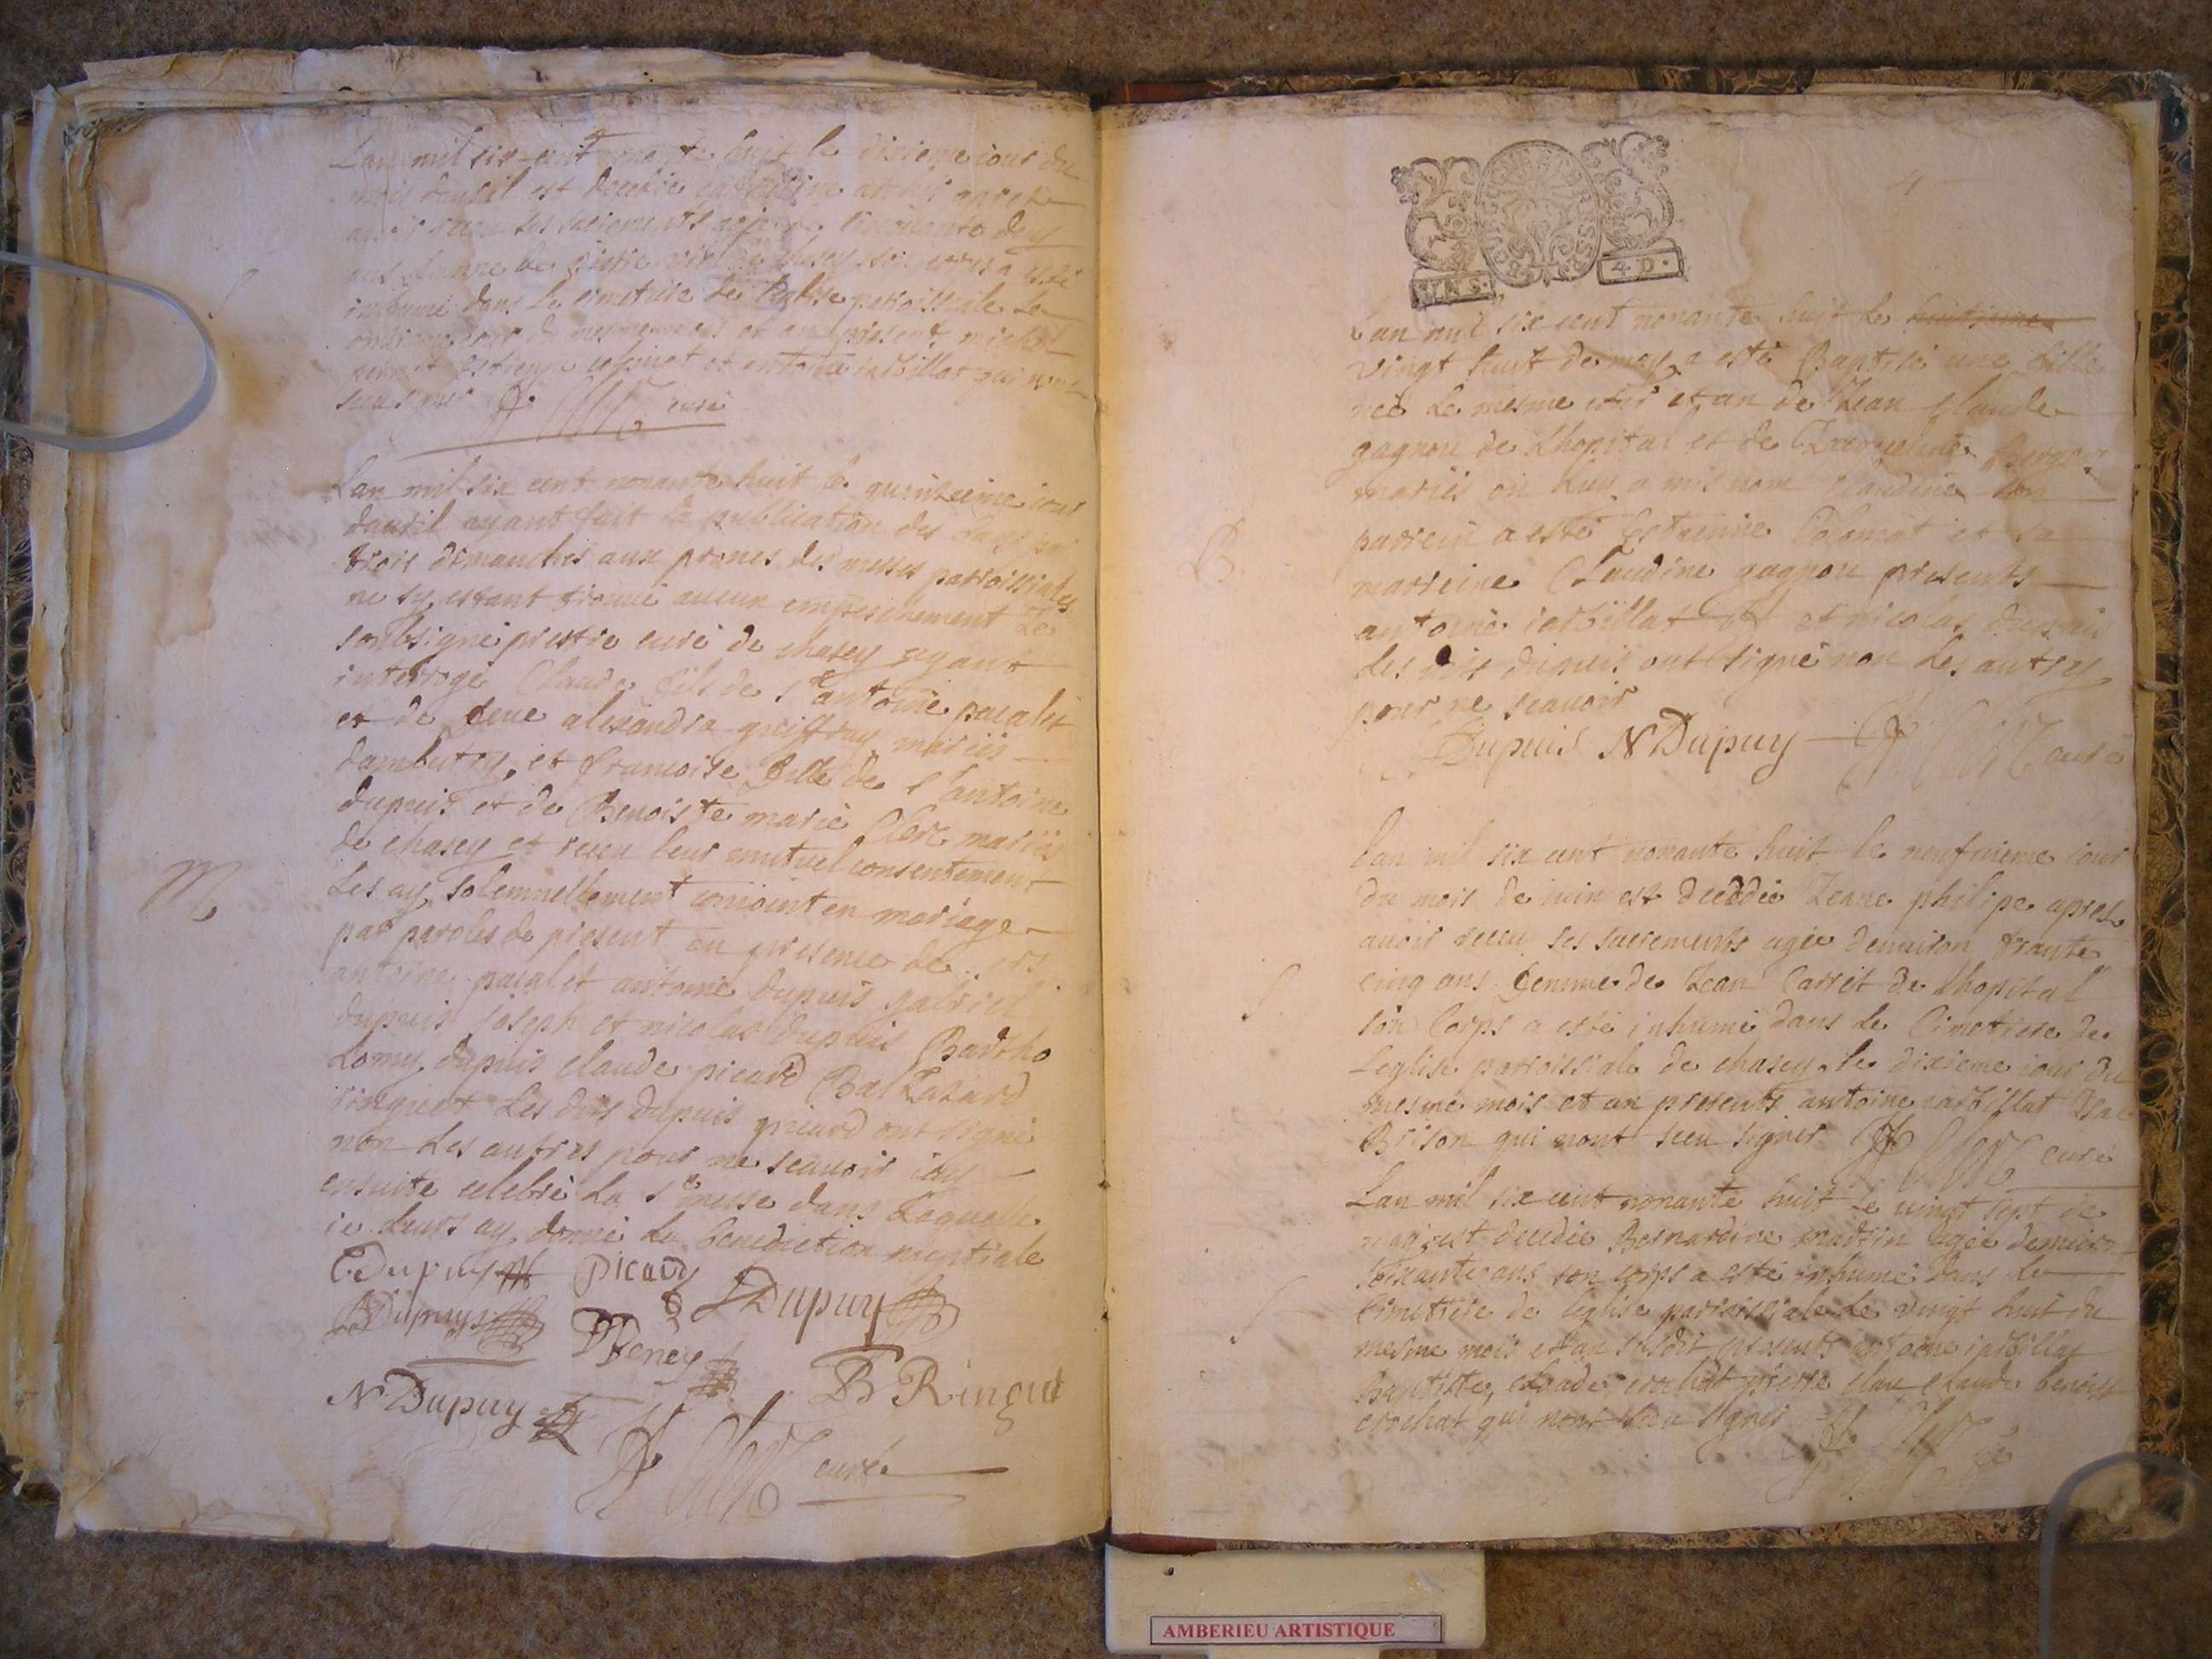 Lan mil six cent nonante huit le dixieme iour du
mois dauril est decedée apres
auoir receu ses sacrements agée de cinquante deux
ans femme de son corps a esté
inhumé dans le cimetiere de leglise parroissiale le
onzieme iour du mesme mois et an presents michel
et antoine iarbillat qui nont
sceu signer curé
Lan mil six cent nonante huit le quinzieme iour
dauril ayant fait la publication des bans par
trois dimanches aux prones des messes parroissiales
ne sy estant trouué aucun empeschement Je
soubsigné prestre curé de chasey ayant
interrogé Claude fils de Sr antoine pacalet
et de feue alexandra greiffray mariés
dambutry, et francoise fille de Sr antoine
dupuis et de Benoiste marie Clerc mariés
de chasey et receu leur mutuel consentement
Les ay solemnellement conioint en mariage
par paroles de present en presence de srs
antoine pacalet antoine dupuis gabriel
dupuis joseph et nicolas dupuis Bartho
Lomy dupuis claude picard Baltazard
ringuet Les dits dupuis picard ont signé
non Les autres pour ne scauoir iay
ensuite celebré La Ste messe dans Laquelle
ie Leurs ay donné La benediction nuptiale
M
CDupuy Picard JDupuy
BDupuys
NDupuy B Ringut
curé
4
4 D.
Lan mil six cent nonante huit le huitieme
vingt huit de may a esté Baptisé une fille
née Le mesme iour et an de Jean Claude
gagnon de Lhopital et de Jacqueline
mariés on Luy a mis nom Claudine son
parrein a esté et sa
marreine Claudine gagnon presents
antoine iarbillat et nicolas dupuis
Les dits dupuis ont signé non Les autres
pour ne scauoir
B
Dupuis NDupuy curé
Lan mil six cent nonante huit le neufuieme iour
du mois de iuin est decedée Jeane philipe apres
auoir receu ses sacrements agée denuiron trante
cinq ans femme de Jean Carret de Lhopital
son Corps a esté inhumé dans Le Cimetiere de
Leglise parroissiale de chasey le dixieme iour du
mesme mois et an presents antoine iarbillat
Brison qui nont sceu signer curé
Lan mil six cent nonante huit le vingt sept de
may est decedée Bernardine martin agée denuiron
soixante ans son corps a esté inhumé dans Le
Cimetiere de leglise parroissiale Le vingt huit du
mesme mois et an susdit presents antoine iarbillat
claude crochat pierre claude benoist
crochat qui nont sceu signer
AMBERIEU ARTISTIQUE